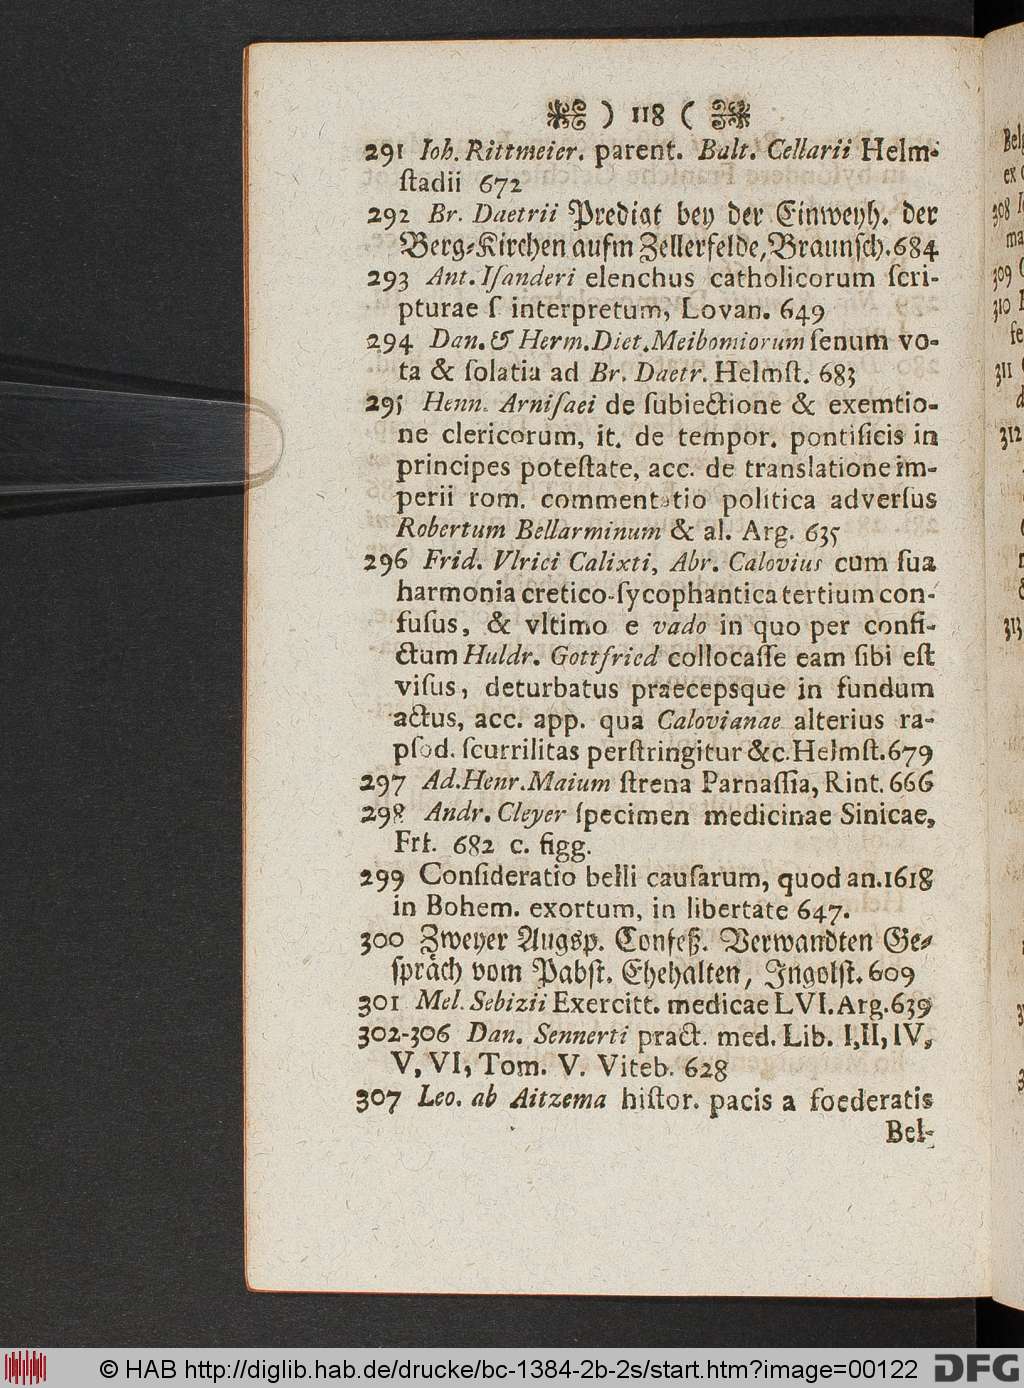 ) 118 (
291 Ioh. Rittmeier. parent. Balt. Cellarii Helm-
ſtadii 672
292 Br. Daetrii Predigt bey der Einweyh. der
Berg-Kirchen aufm Zellerfelde, Braunſch. 684
293 Ant. Iſanderi elenchus catholicorum ſcri-
pturae ſ interpretum, Lovan. 649
294 Dan. & Herm. Diet. Meibomiorum ſenum vo-
ta & ſolatia ad Br. Daetr. Helmſt. 683
295 Henn. Arniſaei de ſubiectione & exemtio-
ne clericorum, it. de tempor. pontificis in
principes poteſtate, acc. de translatione im-
perii rom. commentatio politica adverſus
Robertum Bellarminum & al. Arg. 635
296 Frid. Vlrici Calixti, Abr. Calovius cum ſua
harmonia cretico-ſycophantica tertium con-
fuſus, & vltimo e vado in quo per confi-
ctum Huldr. Gottfried collocaſſe eam ſibi eſt
viſus, deturbatus praecepsque in fundum
actus, acc. app. qua Calovianae alterius ra-
pſod. ſcurrilitas perſtringitur &c. Helmſt. 679
297 Ad. Henr. Maium ſtrena Parnaſſia, Rint. 666
298 Andr. Cleyer ſpecimen medicinae Sinicae,
Frf. 682 c. figg.
299 Conſideratio belli cauſarum, quod an. 1618
in Bohem. exortum, in libertate 647.
300 Zweyer Augsp. Confeß. Verwandten Ge-
ſpräch vom Pabſt. Ehehalten, Ingolſt. 609
301 Mel. Sebizii Exercitt. medicae LVI. Arg. 639
302-306 Dan. Sennerti pract. med. Lib. I, II, IV,
V, VI, Tom. V. Viteb. 628
307 Leo. ab Aitzema hiſtor. pacis a foederatis
Bel-
© HAB http://diglib.hab.de/drucke/bc-1384-2b-2s/start.htm?image=00122
DFG